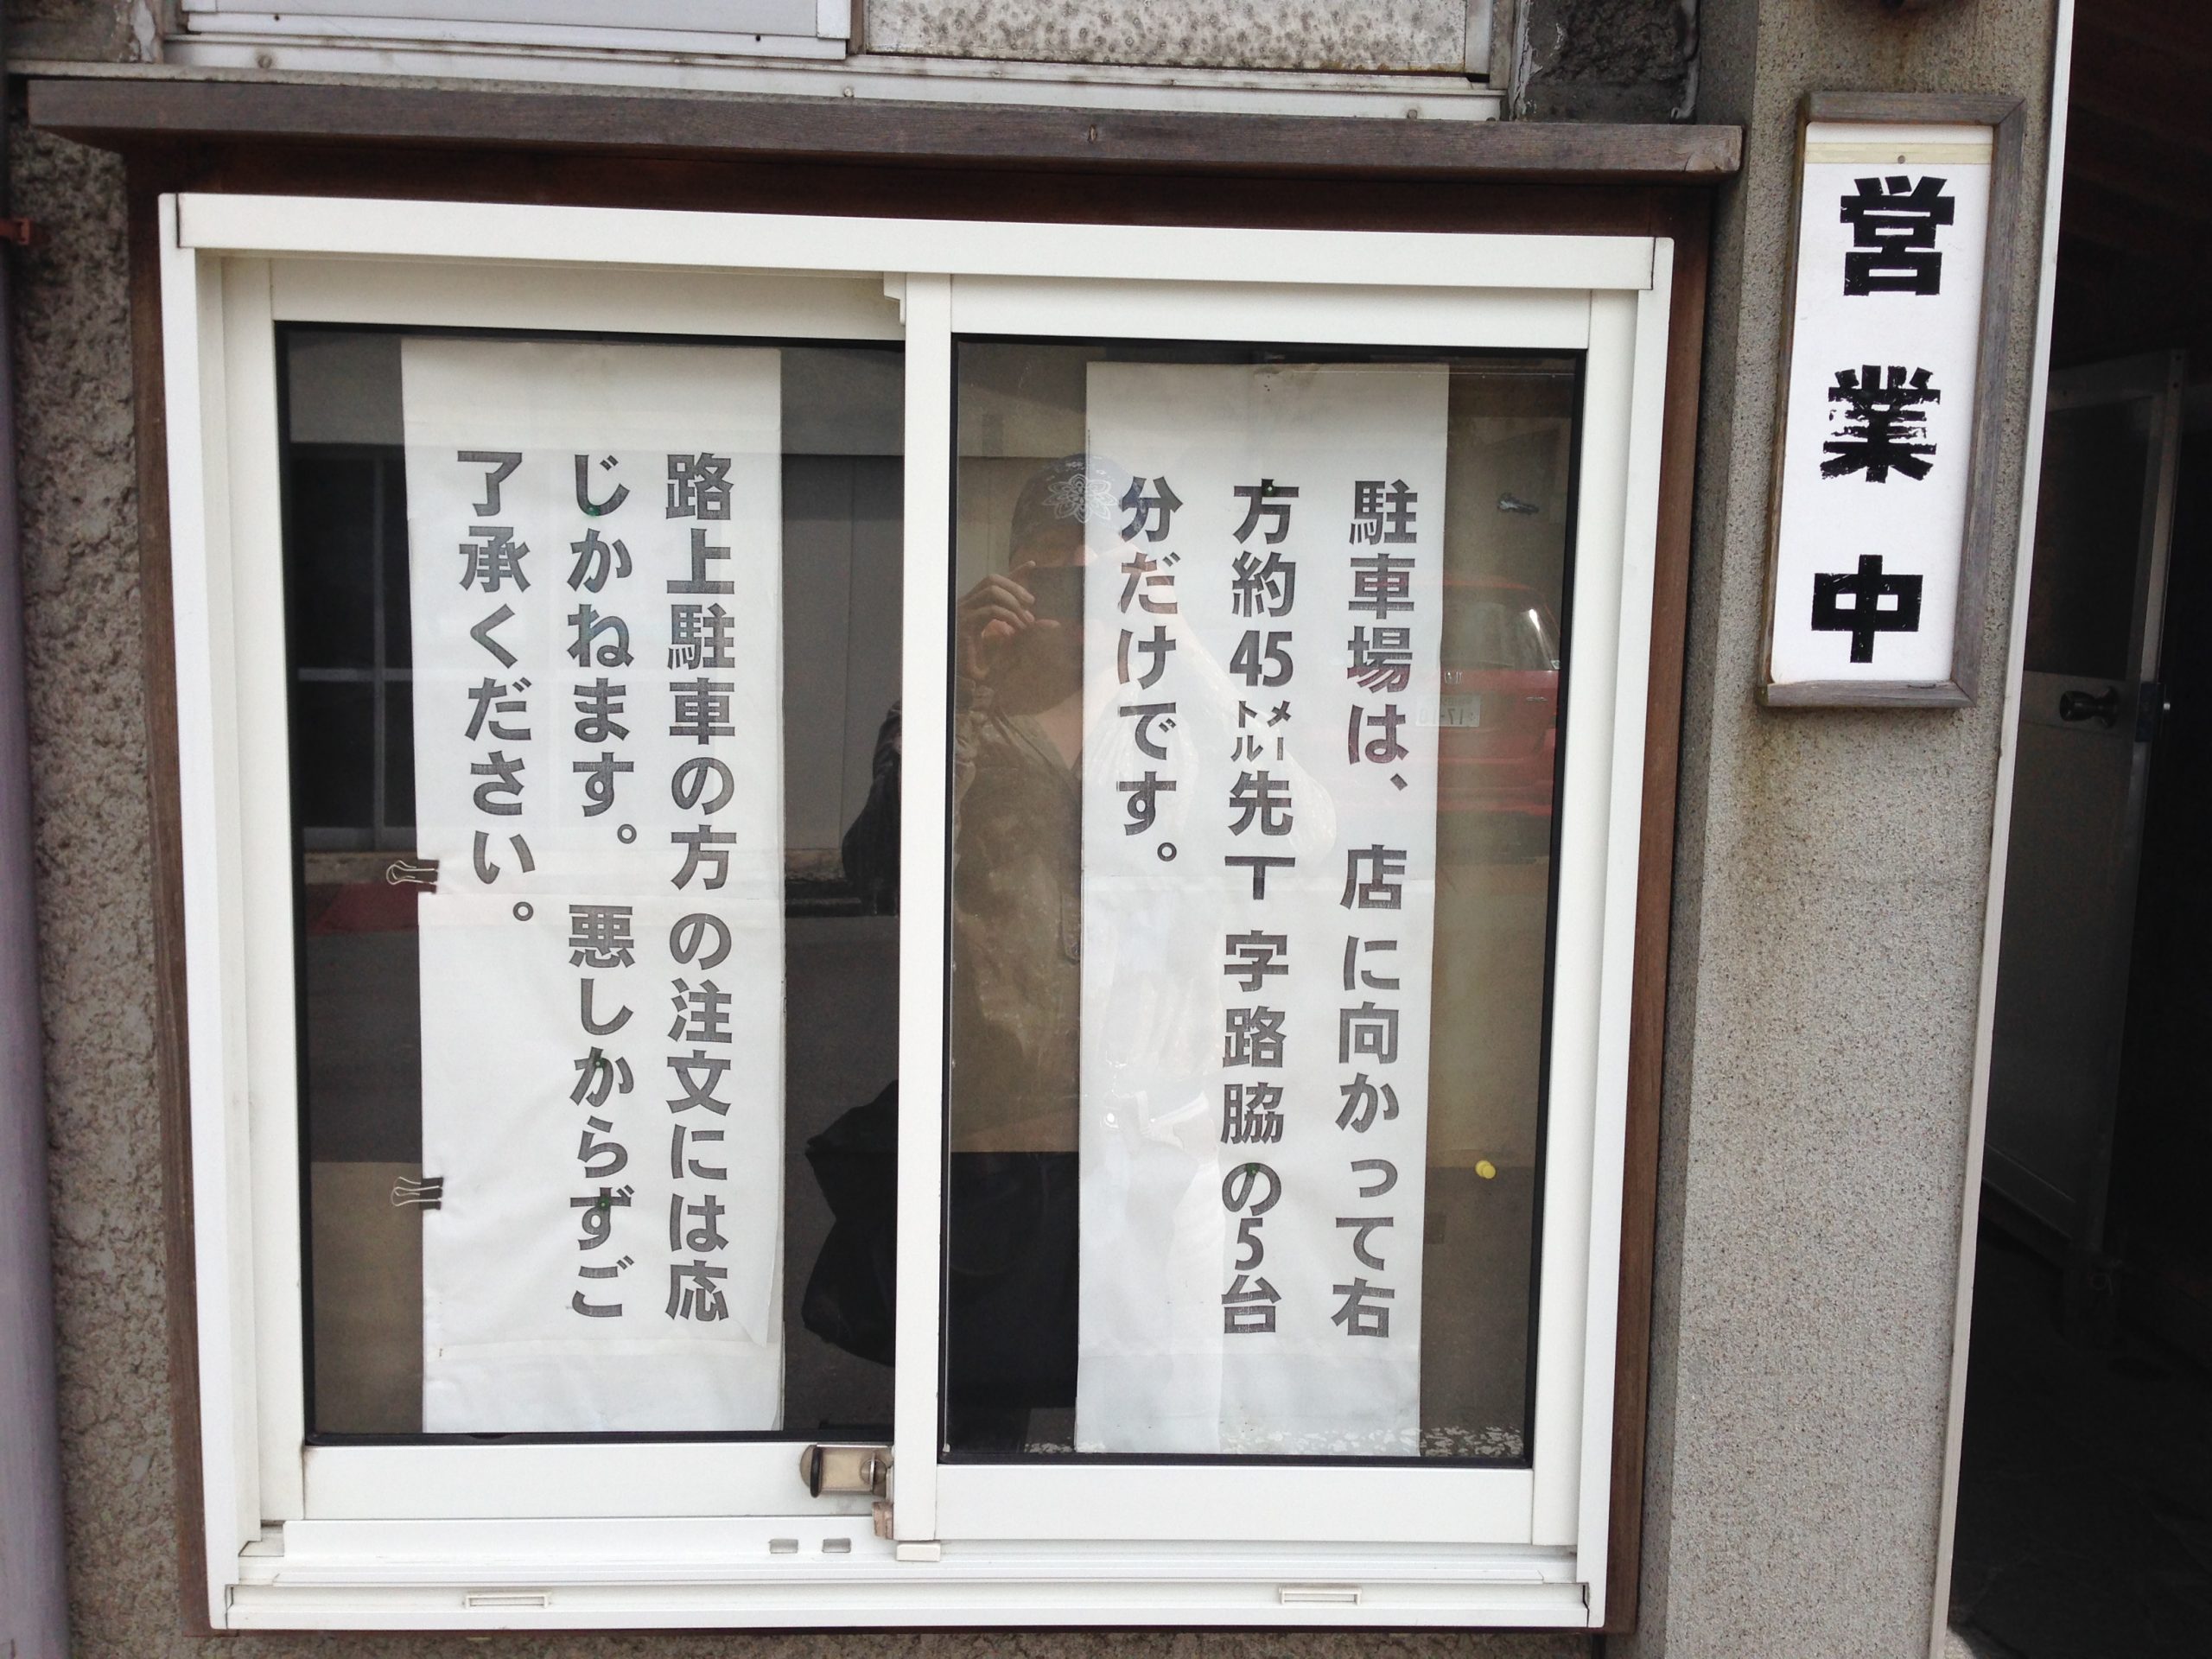 営業中
駐車場は、店に向かって右
方約45メートル先T字路脇の5台
分だけです。
路上駐車の方の注文には応
じかねます。悪しからずご
了承ください。